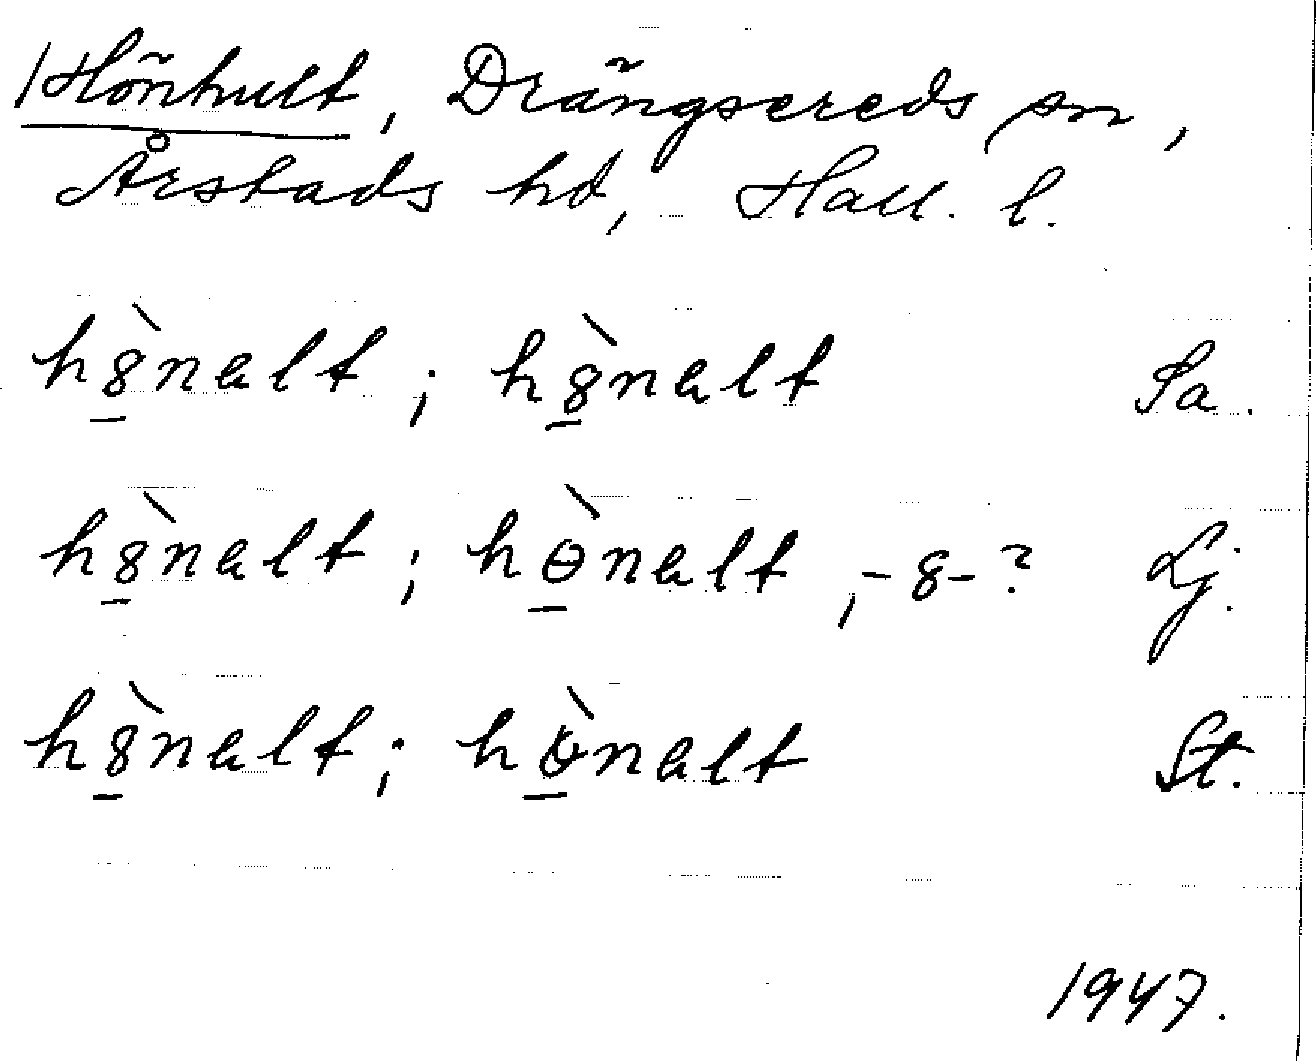 Hönhult, Drängsereds sn,
Årstads hd, Hall. l.
h8̲̀nalt ; h8̲̀nalt Sa.
h8̲̀nalt ; hɵ̲̀nalt, -8-? Lj.
h8̲̀nalt ; hɵ̲̀nalt St.
1947.